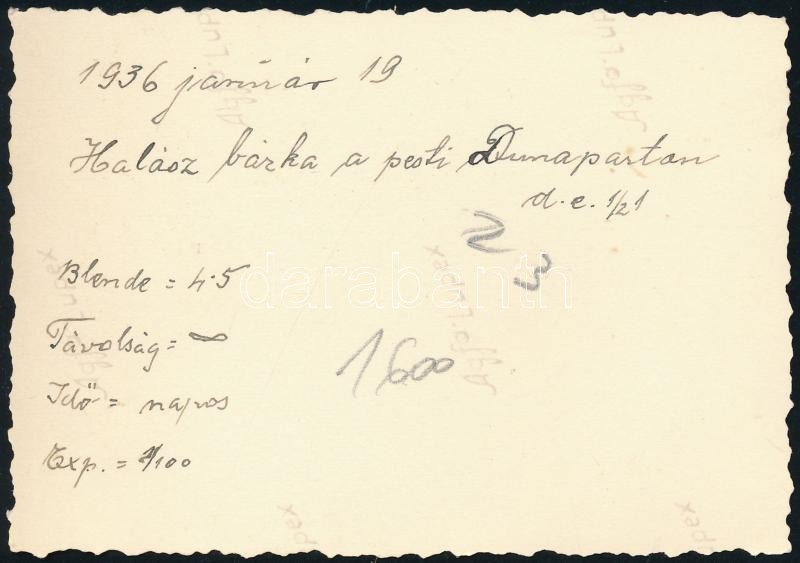 1936 január 19
Halász bárka a pesti Dunaparton
d.e. 1/2 1
Blende = 4.5
Távolság = ∞
Idő = napos
Exp. = 1/100
23
1600
Agfa Lupex
Agfa Lup
Agfa Lupex
Agfa Lupex
pex
pex
darabanth